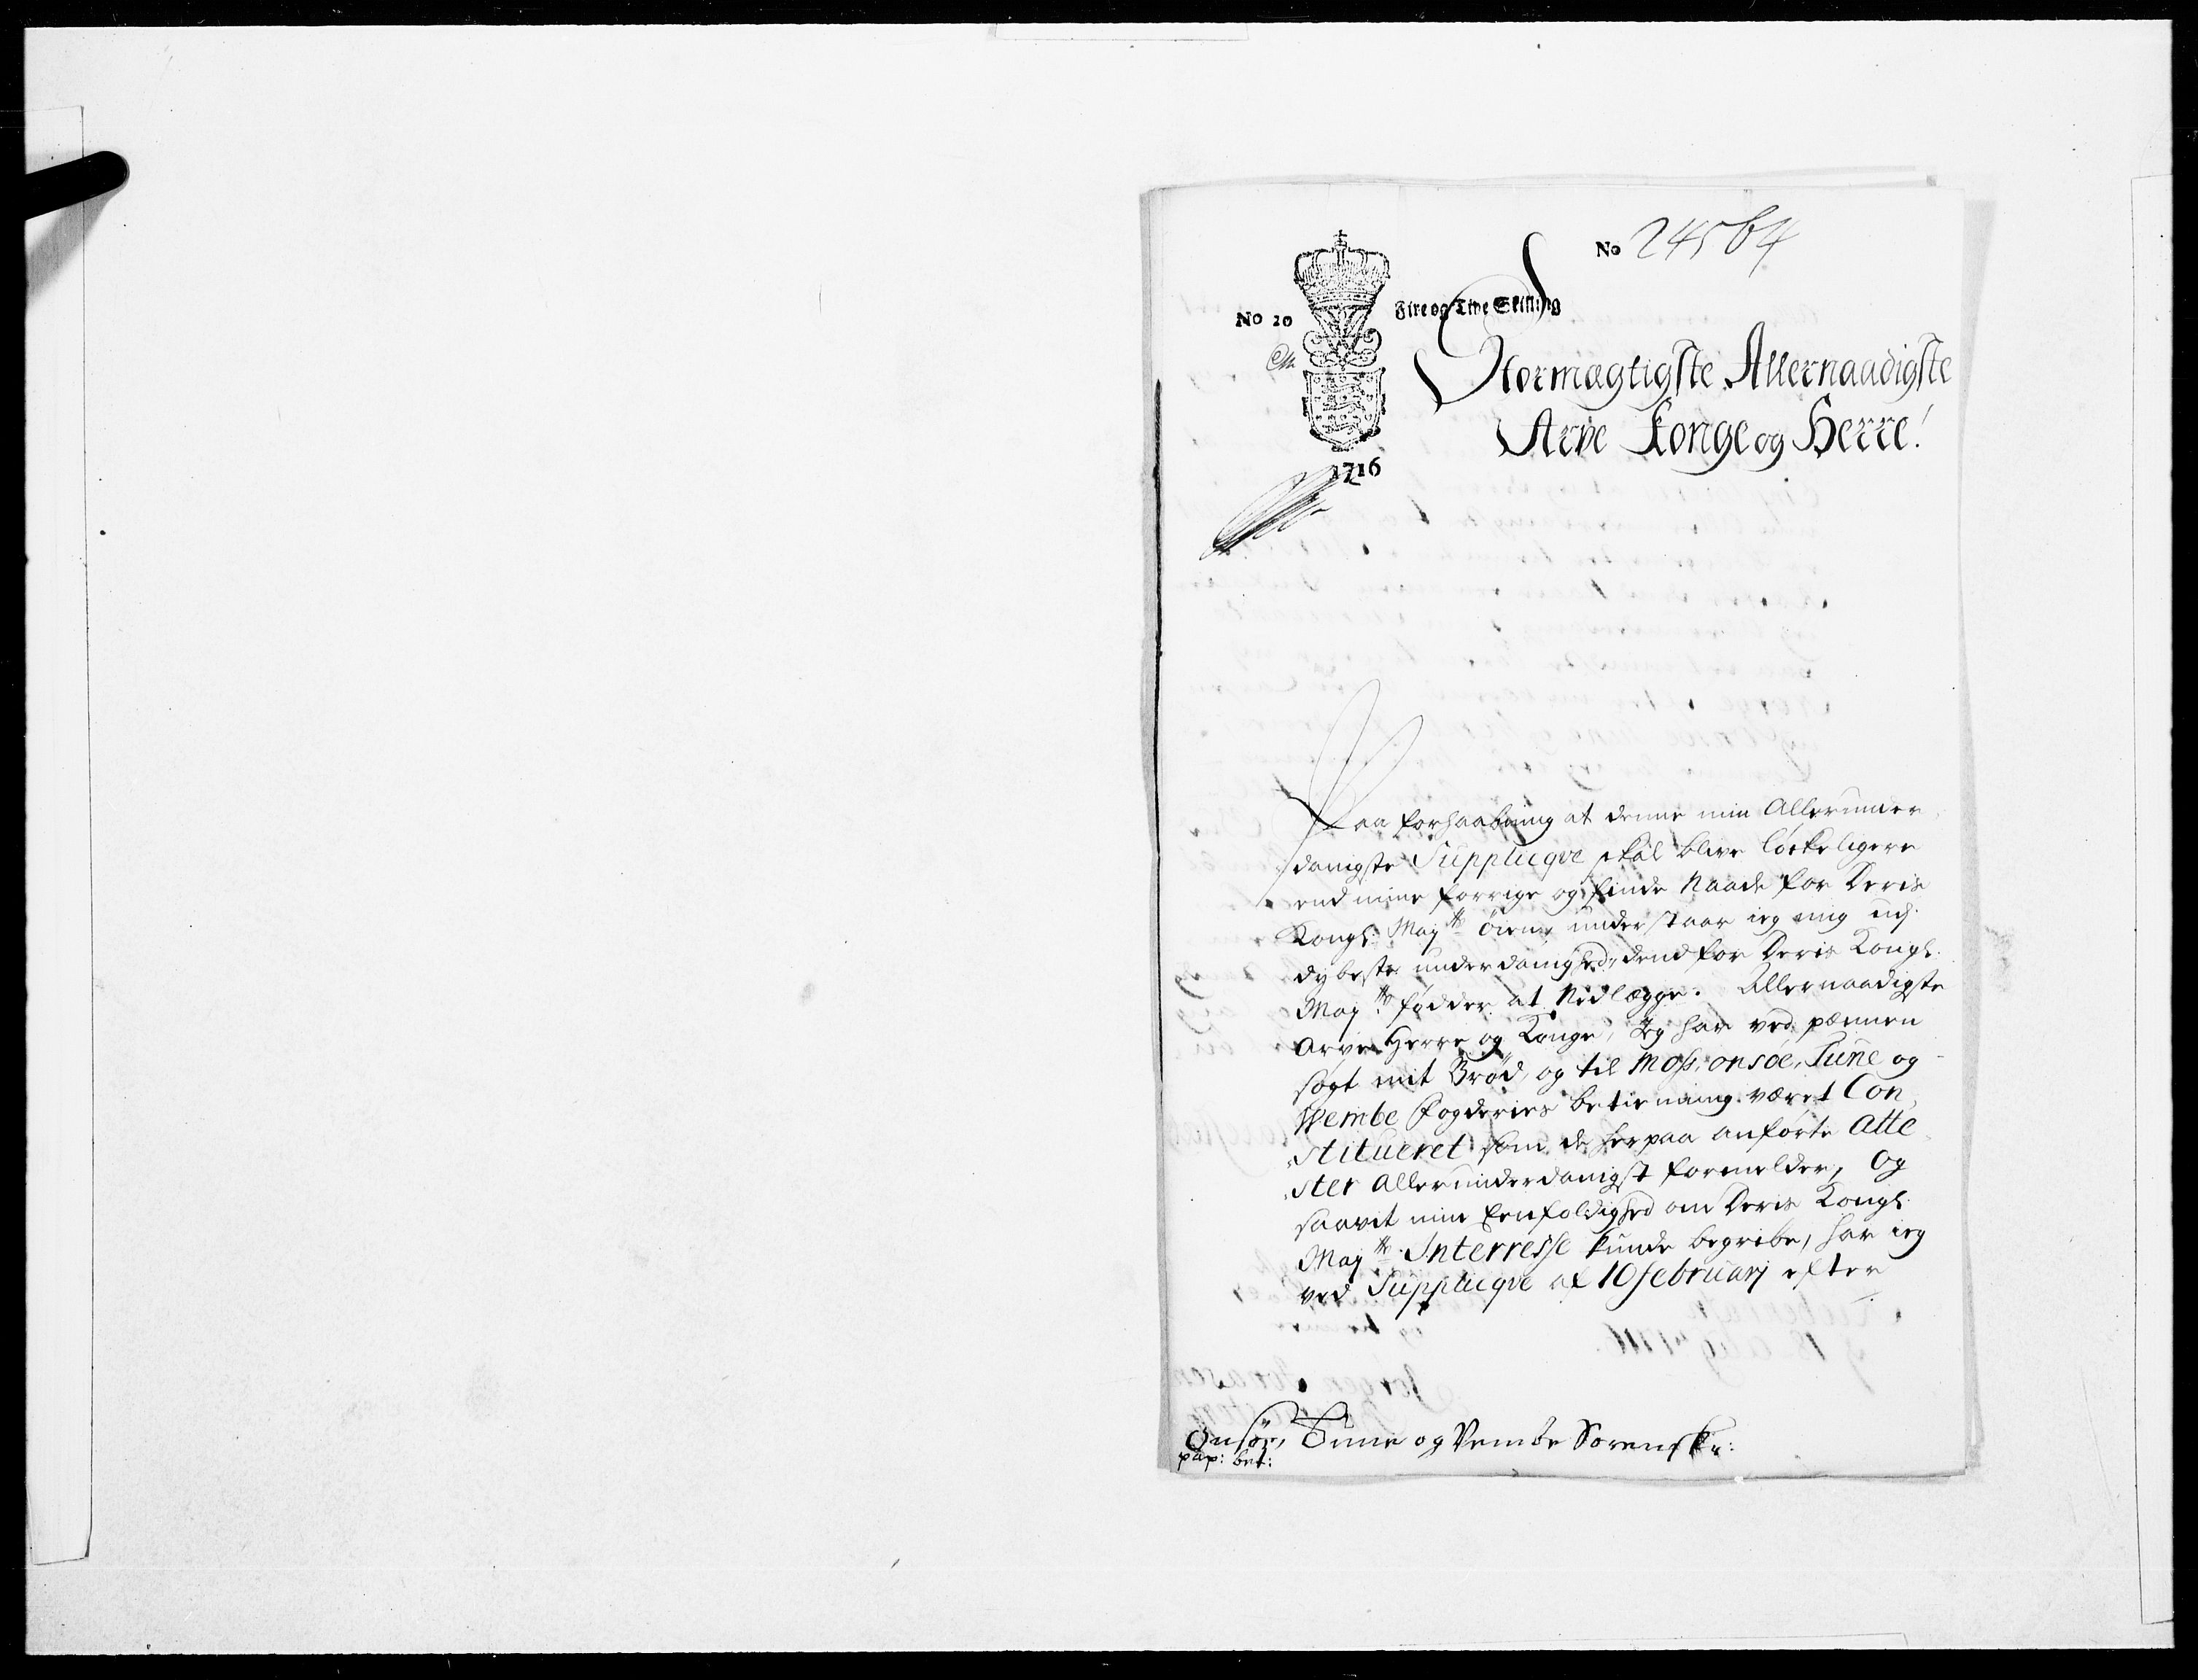 No 24564
No 20
Fire og Tive Skilling
1716
Stormægtigste Allernaadigste
Arve Konge og Herre!
Paa forhaabning at denne min Allerunder
danigste Supplicqve skal blive løckeligere
end mine forrige og finde Naade for Deris
Kongl: Mayts øiene understaar ieg mig udj
dybeste underdanighed, dend for Deris Kongl.
Mayts fødder at Nedlægge. Allernaadigste
Arve Herre og Konge, Jeg har ved pennen
søgt mit Brød, og til Moss, Onsøe, Tune og
Wembe Fogderies betiening været Con
stitueret som de herpaa anførte Atte
ster allerunderdanigst formelder, Og
saavit min Eenfoldighed om Deris Kongl.
Mayts Interresse kunde begribe, har ieg
ved Supplicqve af 10 februarj efter
Onsøe, Tune og Vembe Sorenskr:
pap: bet: